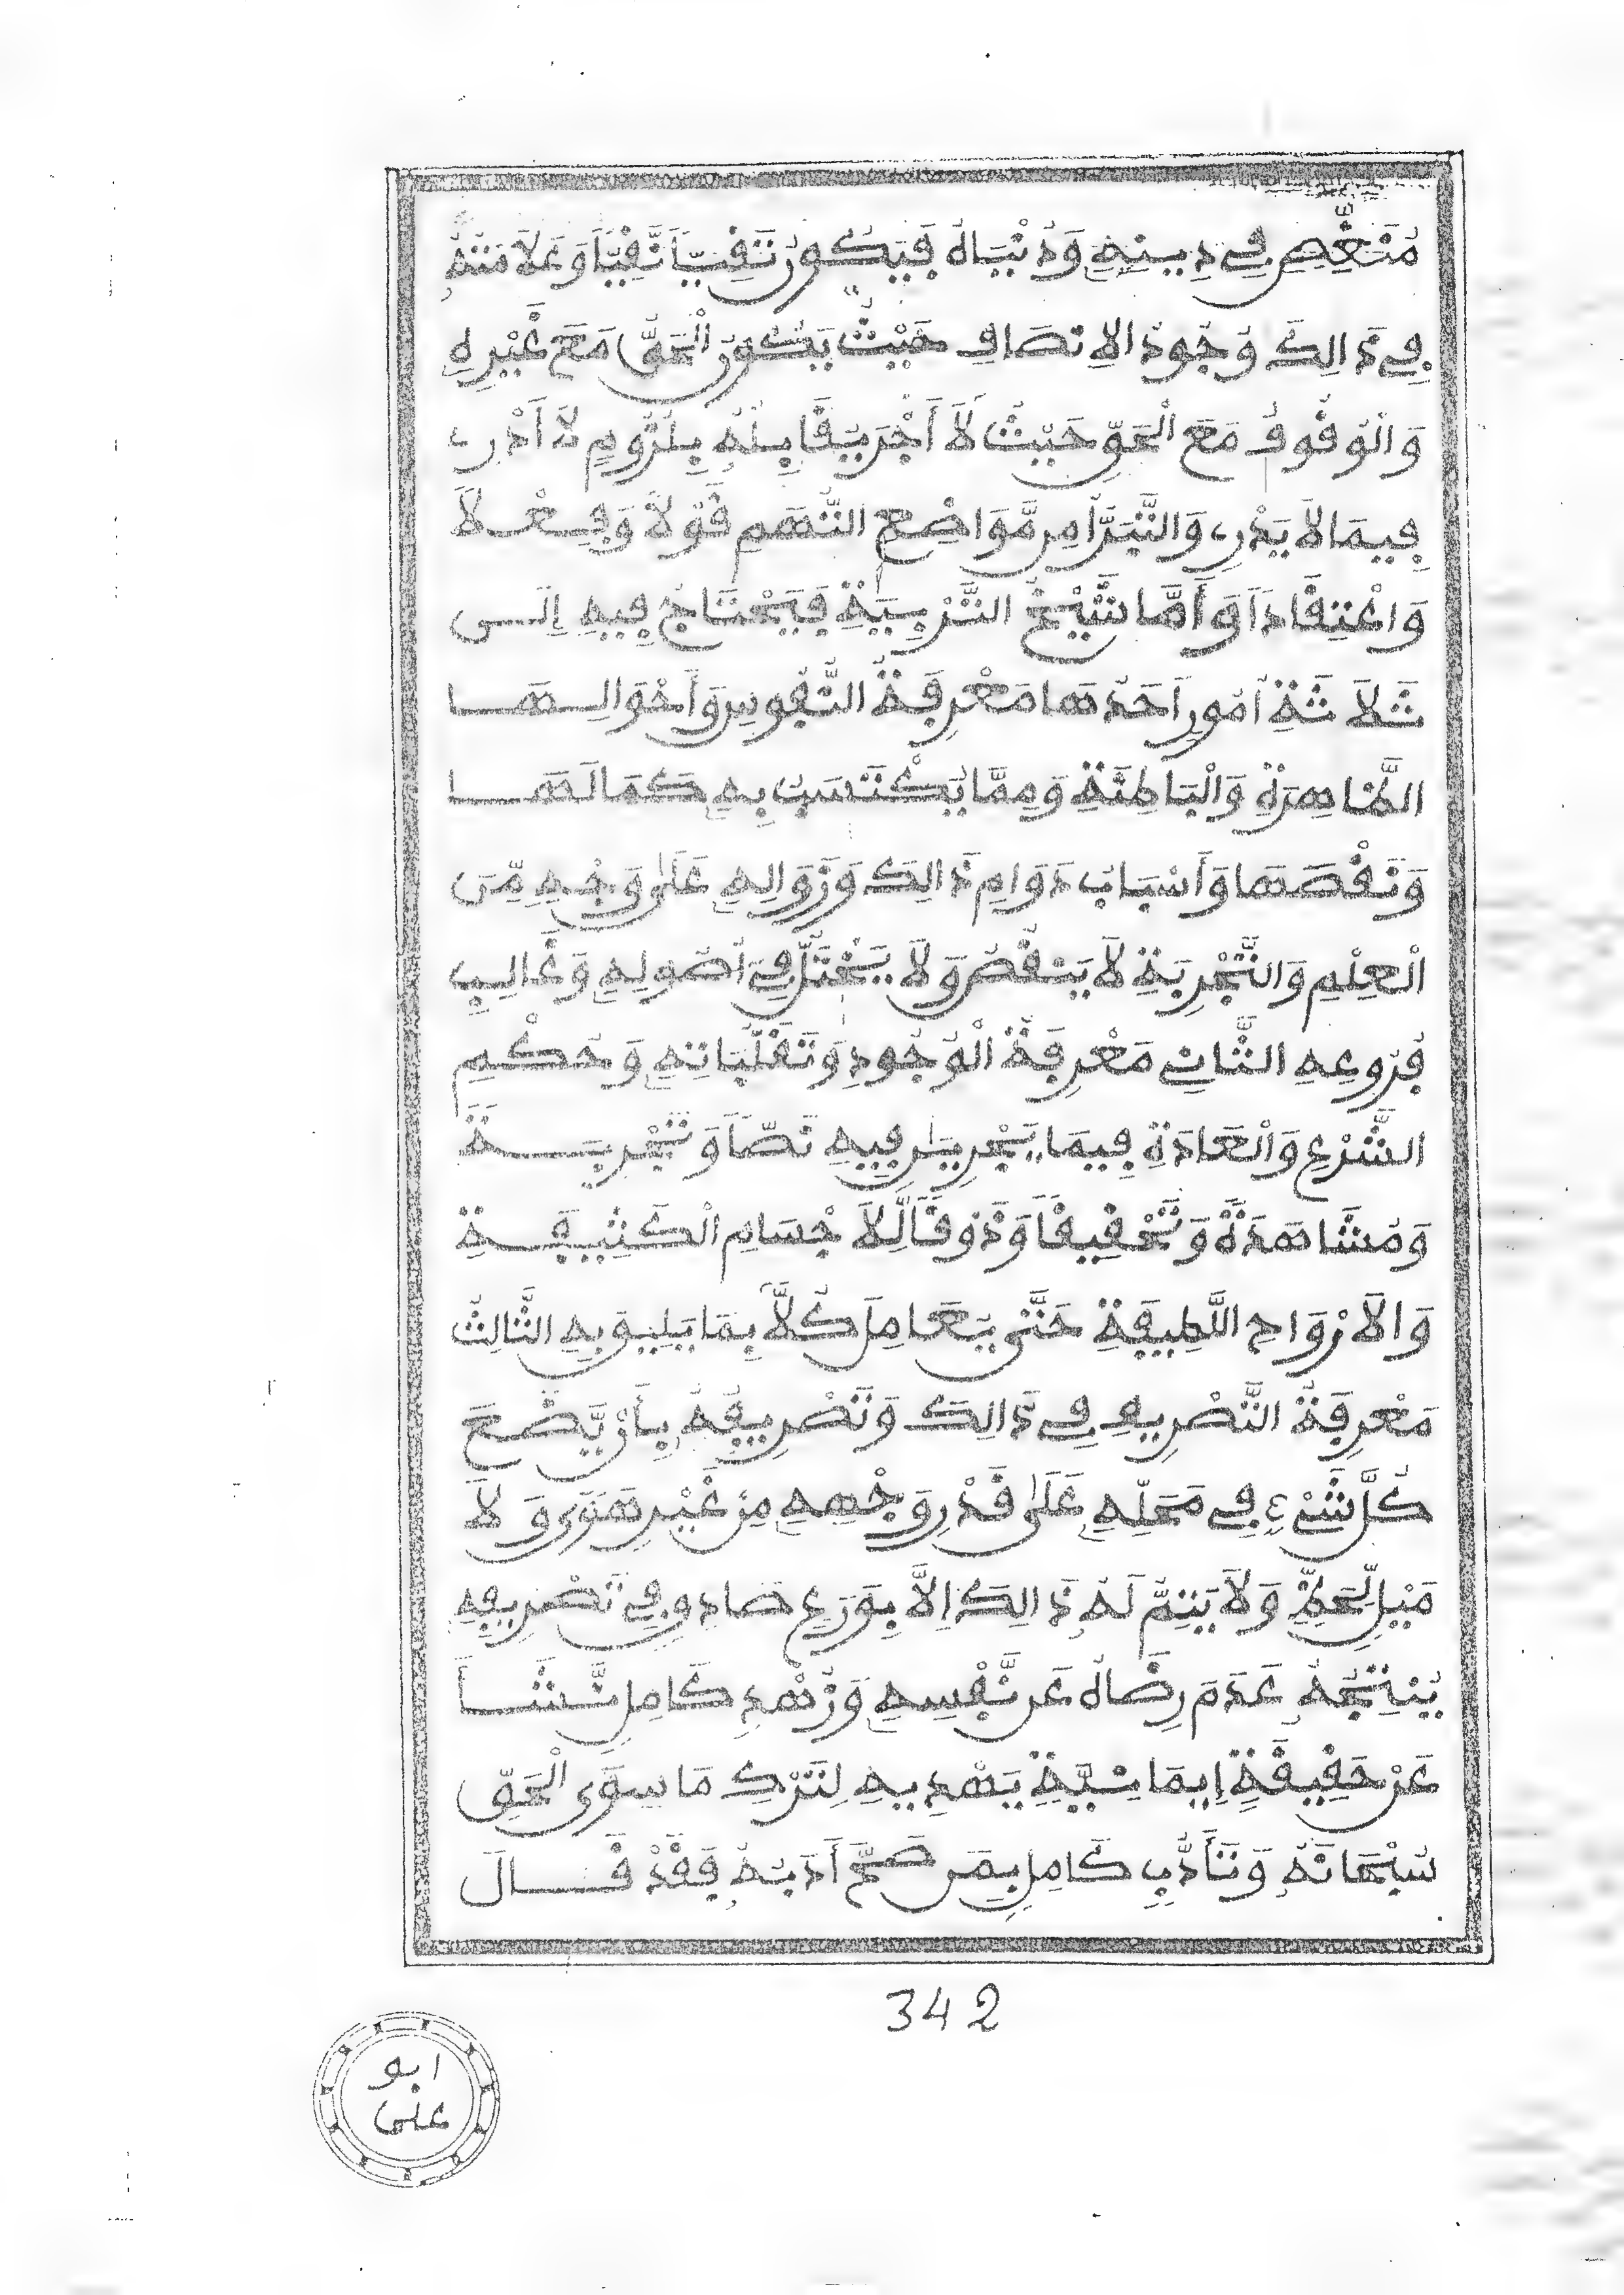 مُنَغِّصٍ فِي دِينِهِ وَدُنْيَاهُ فَيَكُونُ تَقِيّاً نَقِيّاً وَعَلَامَتُهُ
فِي ذَالِكَ وُجُودُ الِانْصَافِ حَيْثُ يَكُونُ الْحَقُّ مَعَ غَيْرِهِ
وَالْوُقُوفُ مَعَ الْحَقِّ حَيْثُ لَا أَجْرَ يُقَابِلُهُ بِلُزُومِ لَا أَدْرِي
فِيمَا لَا يَدْرِي وَالتَّبَرِّي مِن مَّوَاضِعِ التُّهَمِ قَوْلاً وَفِعْلاً
وَاعْتِقَاداً وَأَمَّا شَيْخُ التَّرْبِيَةِ فَيَحْتَاجُ فِيهِ إِلَى
ثَلَاثَةِ أُمُورٍ أَحَدُهَا مَعْرِفَةُ النُّفُوسِ وَأَحْوَالِهَا
الظَّاهِرَةِ وَالْبَاطِنَةِ وَمِمَّا يُكْتَسَبُ بِهِ كَمَالَهَا
وَنَقْصَهَا وَأَسْبَابُ دَوَامِ ذَالِكَ وَزَوَالِهِ عَلَى وَجْهٍ مِّنَ
الْعِلْمِ وَالتَّجْرِبَةِ لَا يَنْقُصُ وَلَا يَخْتَلُّ فِي أُصُولِهِ وَغَالِبِ
فُرُوعِهِ الثَّانِي مَعْرِفَةُ الْوُجُودِ وَتَقَلُّبَاتِهِ وَحُكْمِ
الشَّرْعِ وَالْعَادَةِ فِيمَا يَجْرِيَانِ فِيهِ نَصّاً وَتَجْرِبَةً
وَمُشَاهَدَةً وَتَحْقِيقاً وَذَوْقاً لِّلْأَجْسَامِ الْكَثِيفَةِ
وَالْأَرْوَاحِ اللَّطِيفَةِ حَتَّى يُعَامِلَ كُلّاً بِمَا يَلِيقُ بِهِ الثَّالِثُ
مَعْرِفَةُ التَّصْرِيفِ فِي ذَالِكَ وَتَصْرِيفُهُ بِأَنْ يَّضَعَ
كُلَّ شَيْءٍ فِي مَحَلِّهِ عَلَى قَدْرِ وَجْهِهِ مِنْ غَيْرِ هَوًى وَلَا
مَيْلٍ لِّحَظٍّ وَلَا يَتِمُّ لَهُ ذَالِكَ إِلَّا بِوَرَعٍ صَادِقٍ فِي تَصْرِيفِهِ
يُنْتِجُهُ عَدَمُ رِضَاهُ عَن نَّفْسِهِ وَزُهْدٍ كَامِلٍ نَّشَأَ
عَنْ حَقِيقَةٍ إِيمَانِيَّةٍ يَهْدِيهِ لِتَرْكِ مَا سِوَى الْحَقِّ
سُبْحَانَهُ وَتَأَدُّبٍ كَامِلٍ بِمَن صَحَّ أَدَبُهُ فَقَدْ قَالَ
342
ابو
على